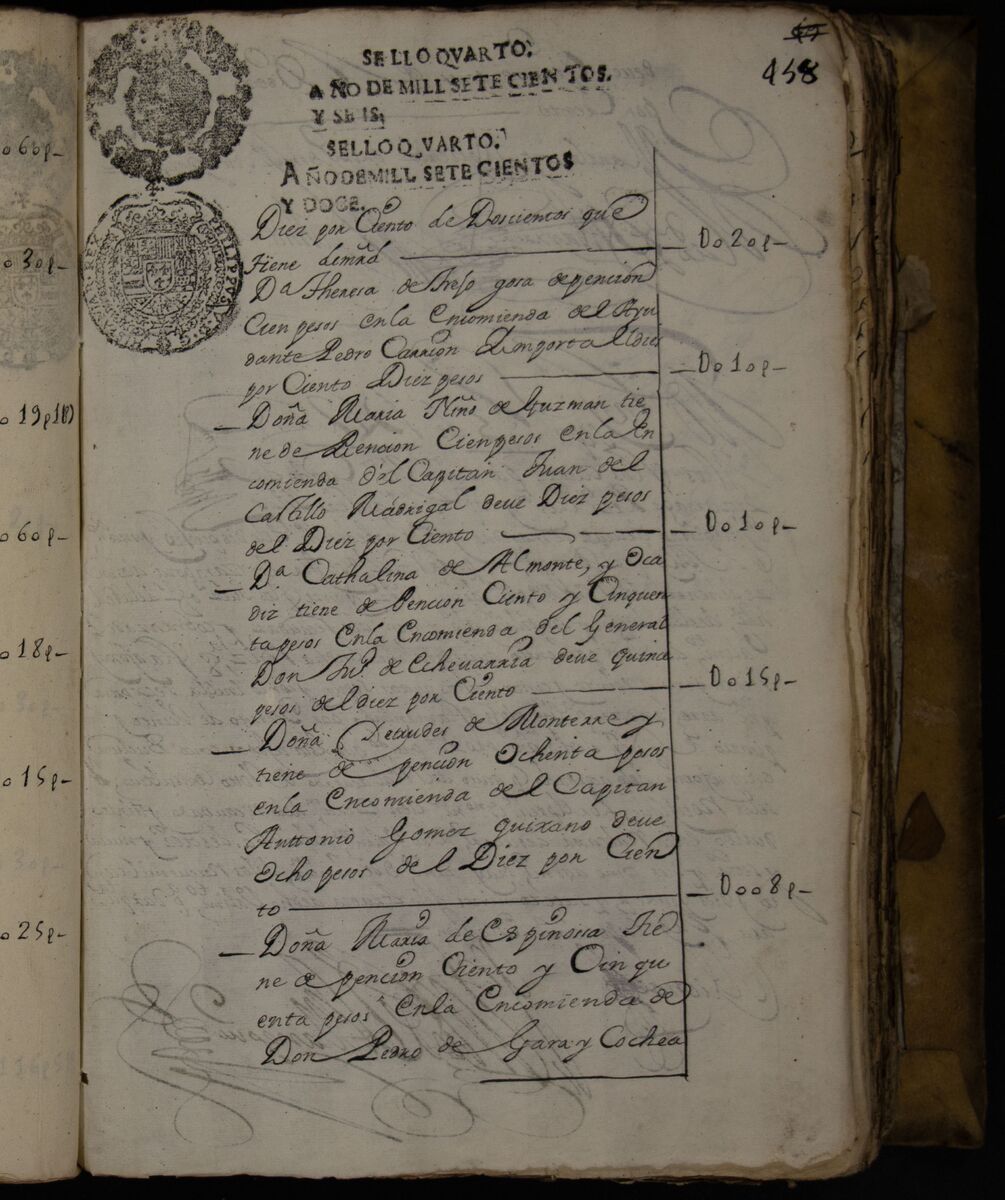 458
SELLO QVARTO,
AÑO DE MILL SETECIENTOS.
Y SEIS,
SELLO QVARTO,
AÑO DE MILL SETECIENTOS
Y DOCE.
PHILIPPVS V
Diez por Ciento de Doscientos que
tiene
D o 2 o p
Da Theresa de Trejo gosa de pencion
Cien pesos en la Encomienda del Ayu
dante Pedro Carrion Ymporta el dies
por Ciento Diez pesos
D o 1 o p
Doña Maria Niño de Guzman tie
ne de Pencion Cien pesos en la En
comienda del Capitan Juan del
Castillo Madrigal deue Diez pesos
del Diez por Ciento
D o 1 o p
Da Cathalina de Almonte, y Oca
diz tiene de Pencion Ciento y Cinquen
ta pesos En la Encomienda del General
Don Juo de Echeuarria deue quinse
pesos del diez por Ciento
D o 15 p
Doña Jetrudes de Monterrey
tiene de pencion Ochenta pesos
en la Encomienda del Capitan
Anttonio Gomez quixano deue
Ocho pesos del Diez por Cien
to
D o o 8 p
Doña Maria de Espinossa tie
ne de pencion Ciento y Cinqu
enta pesos En la Encomienda de
Don Pedro de Garay Cochea
o 6 o p
o 3 o p
o 19 p
o 6 o p
o 18 p
o 15 p
o 25 p